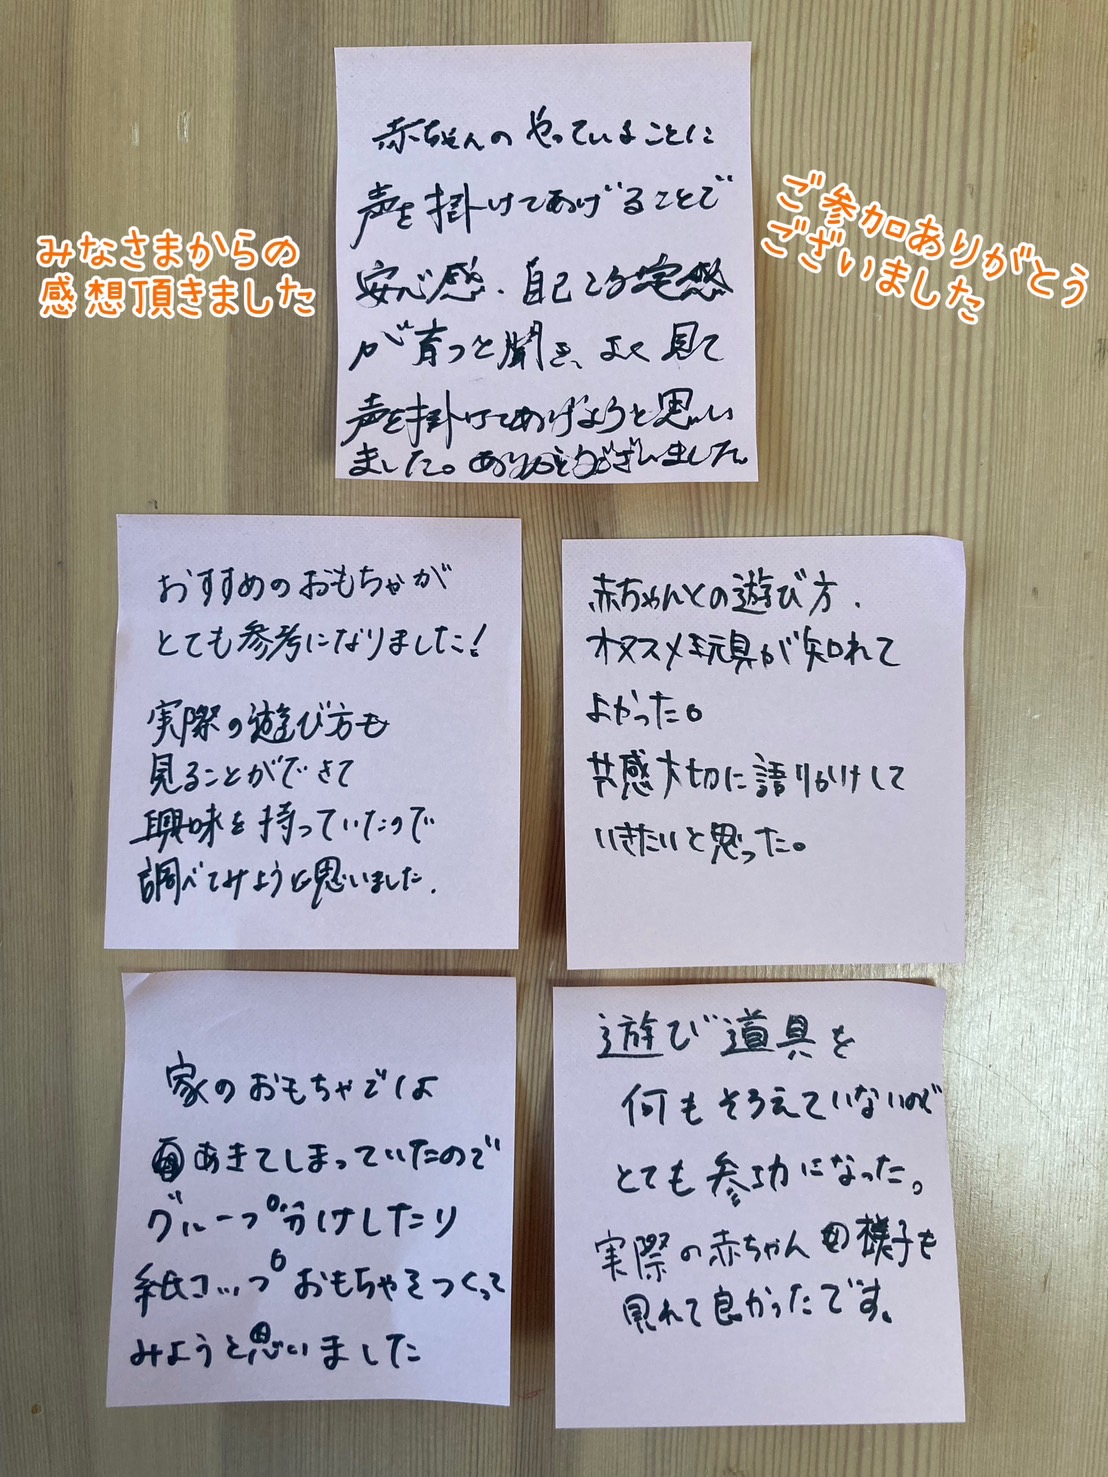 みなさまからの
感想頂きました
ご参加ありがとう
ございました
赤ちゃんのやっていることに
声を掛けてあげることで
安心感、自己
が育つと聞き、よく見て
声を掛けてあげようと思い
ました。ありがとうございました。
おすすめのおもちゃが
とても参考になりました!
実際の遊び方も
見ることができて
興味を持っていたので
調べてみようと思いました。
赤ちゃんとの遊び方、
オススメ玩具が知れて
よかった。
共感大切に語りかけして
いきたいと思った。
家のおもちゃでは
あきてしまっていたので
グループ分けしたり
紙コップおもちゃをつくって
みようと思いました
遊び道具を
何もそろえていないので
とても参功になった。
実際の赤ちゃんの様子を
見れて良かったです。